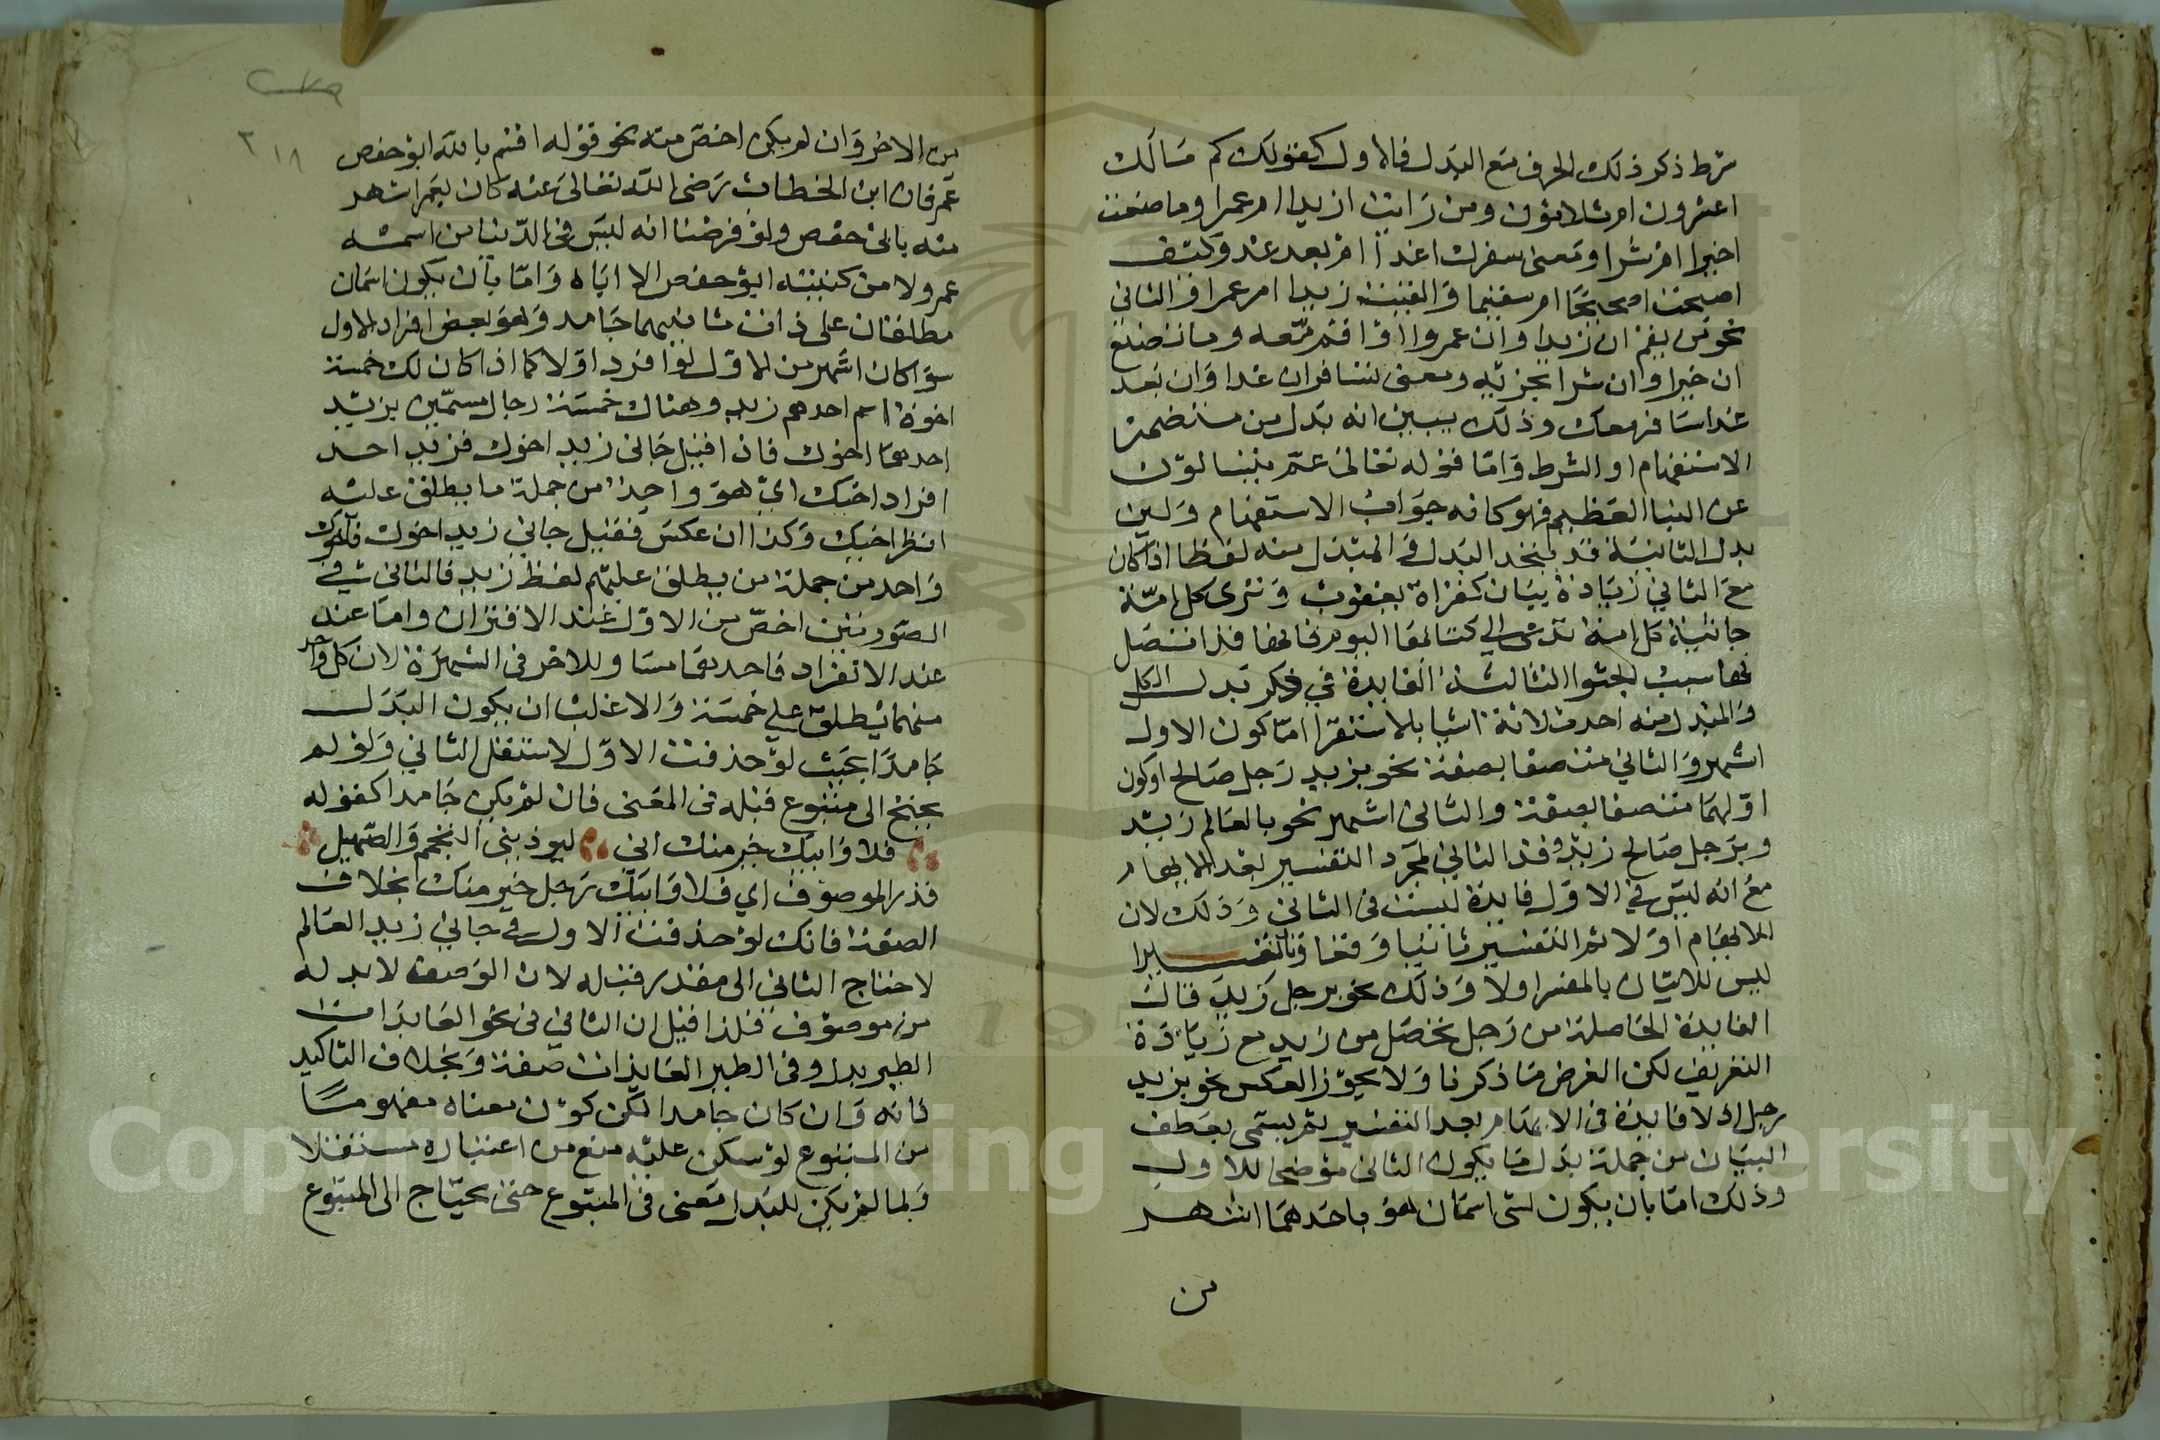 شرط ذكر ذلك الحرف مع البدل فالاول كقولك كم مالك
اعشرون ام ثلاثون ومن رايت ازيدا ام عمرا وما صنعت
اخيرا ام شرا ومعنى سفرك اغدا ام بعد غد وكيف
اصبحت اصحيحا ام سقيما والقيته زيدا ام عمرا والثاني
نحو من يقم ان زيد وان عمرو اقم معه وما تصنع
ان خيرا وان شرا تجز به ومعنى تسافر ان غدا وان بعد
غد اسافر معك وذلك يبين انه بدل من متضمن
الاستفهام او الشرط واما قوله تعالى عم يتسالون
عن النبا العظيم فهو كانه جواب الاستفهام وليس
بدل الثانية قد يتحد البدل في المبدل منه لفظا اذا كان
مع الثاني زيادة بيان كقراة يعقوب وترى كل امة
جاثية كل امة تدعى الى كتابها اليوم فانها قد اتصل
بها سبب الجثو الثالثة الفايدة في ذكر بدل الكل
والمبدل منه احد ثلاثة اشيا بالاستقرا اما كون الاول
اشهر والثاني متصفا بصفة نحو بزيد رجل صالح او كون
اولهما متصفا بصفة والثاني اشهر نحو بالعالم زيد
وبرجل صالح زيد وقد الثاني لمجرد التفسير بعد الابهام
مع انه ليس في الاول فايدة ليست في الثاني وذلك لان
الابهام اولا ثم التفسير ثانيا وقعا وتاثيرا
ليس للاتيان بالمفسر اولا وذلك نحو برجل زيد فان
الفايدة الحاصلة من رجل تحصل من زيد مع زيادة
التعريف لكن الغرض ما ذكرنا ولا يجوز العكس نحو بزيد
رجل اذ لا فايدة في الابهام بعد التفسير ثم يسمى بعطف
البيان من جملة بدل ما يكون الثاني موضحا للاول
وذلك اما بان يكون لشي اسمان هو باحدهما اشهر
من
٢١٨
من الاخر وان لم يكن اخص منه نحو قوله اقسم بالله ابو حفص
عمر فان ابن الخطاب رضى الله تعالى عنه كان بعمر اشهر
منه بابي حفص ولو فرضنا انه ليس في الدنيا من اسمه
عمر ولا من كنيته ابو حفص الا اياه واما بان يكون اسمان
مطلقان على ذات ثانيهما جامد وهو بعض افراد الاول
سوا كان اشهر من الاول لو افرد اولا كما اذا كان لك خمسة
اخوة اسم احدهم زيد وهناك خمسة رجال مسمين بزيد
احدهما اخوك فان قيل جاني زيد اخوك فزيد احد
افراد اخيك اي هو واحد من جملة ما يطلق عليه
لفظ اخيك وكذا ان عكس فقيل جاني زيد اخوك فاخوك
واحد من جملة من يطلق عليهم لفظ زيد فالثاني في
الصورتين اخص من الاول عند الاقتران واما عند
عند الانفراد فاحدهما مساو للاخر في الشهرة لان كل واحد
منهما يطلق على خمسة والاغلب ان يكون البدل
جامدا بحيث لو حذفت الاول لاستقل الثاني ولو لم
يحتج الى متبوع قبله في المعنى فان لم يكن جامدا كقوله
فلا وابيك خير منك اني ليوذيني التحمحم والصهيل
فذر الموصوف اي فلا وابيك رجل خير منك بخلاف
الصفة فانك لو حذفت الاول في جاني زيد العالم
لاحتاج الثاني الى مقدر قبله لان الوصف لا بد له
من موصوف فلذا قيل ان الثاني في نحو العايذات
الطير بدل وفي الطير العايذات صفة وبخلاف التاكيد
فانه وان كان جامدا لكن كون معناه مفهوما
من المتبوع لو سكن عليه منع من اعتباره مستقلا
ولما لم يكن للبدل معنى في المتبوع حتى يحتاج الى المتبوع
Copyright © King Saud University